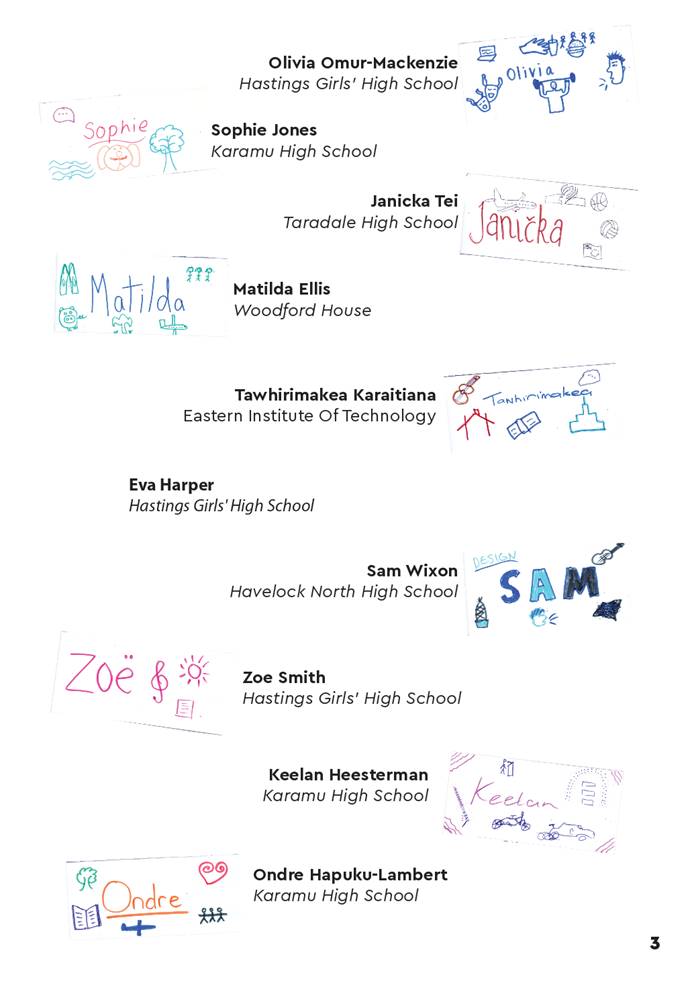 Olivia Omur-Mackenzie
Hastings Girls' High School
Olivia
Sophie
Sophie Jones
Karamu High School
Janicka Tei
Taradale High School
Janička
Matilda
Matilda Ellis
Woodford House
Tawhirimakea Karaitiana
Eastern Institute Of Technology
Tawhirimakea
Eva Harper
Hastings Girls' High School
Sam Wixon
Havelock North High School
DESIGN
SAM
Zoë
Zoe Smith
Hastings Girls' High School
Keelan Heesterman
Karamu High School
Keelan
Ondre
Ondre Hapuku-Lambert
Karamu High School
3